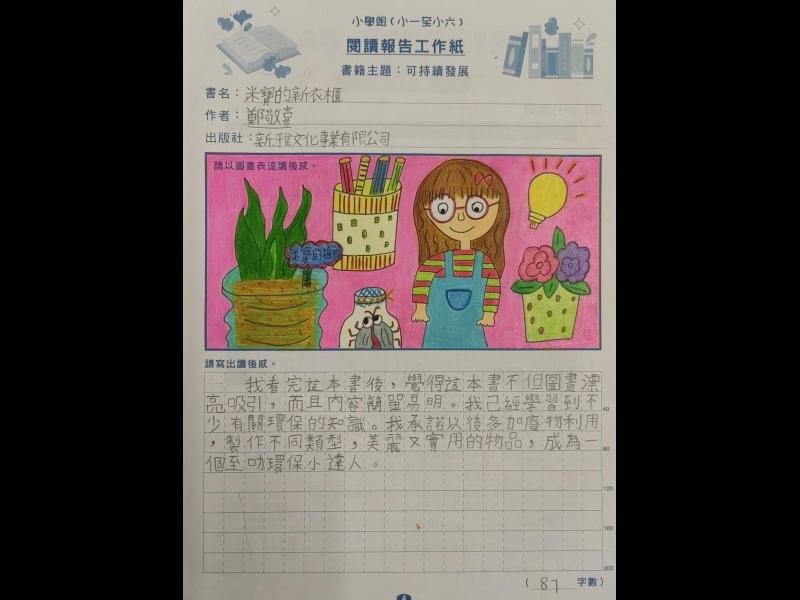 小學組(小一至小六)
閱讀報告工作紙
書籍主題：可持續發展
書名：米寶的新衣櫃
作者：鄭敬喜
出版社：新雅文化事業有限公司
請以圖畫表達讀後感。
請寫出讀後感。
我看完這本書後，覺得這本書不但圖畫漂
亮吸引，而且內容簡單易明。我已經學習到不
40
少有關環保的知識。我承諾以後多加廢物利用
，製作不同類型，美麗又實用的物品，成為一
80
個至叻環保小達人。
120
160
200
(87字數)